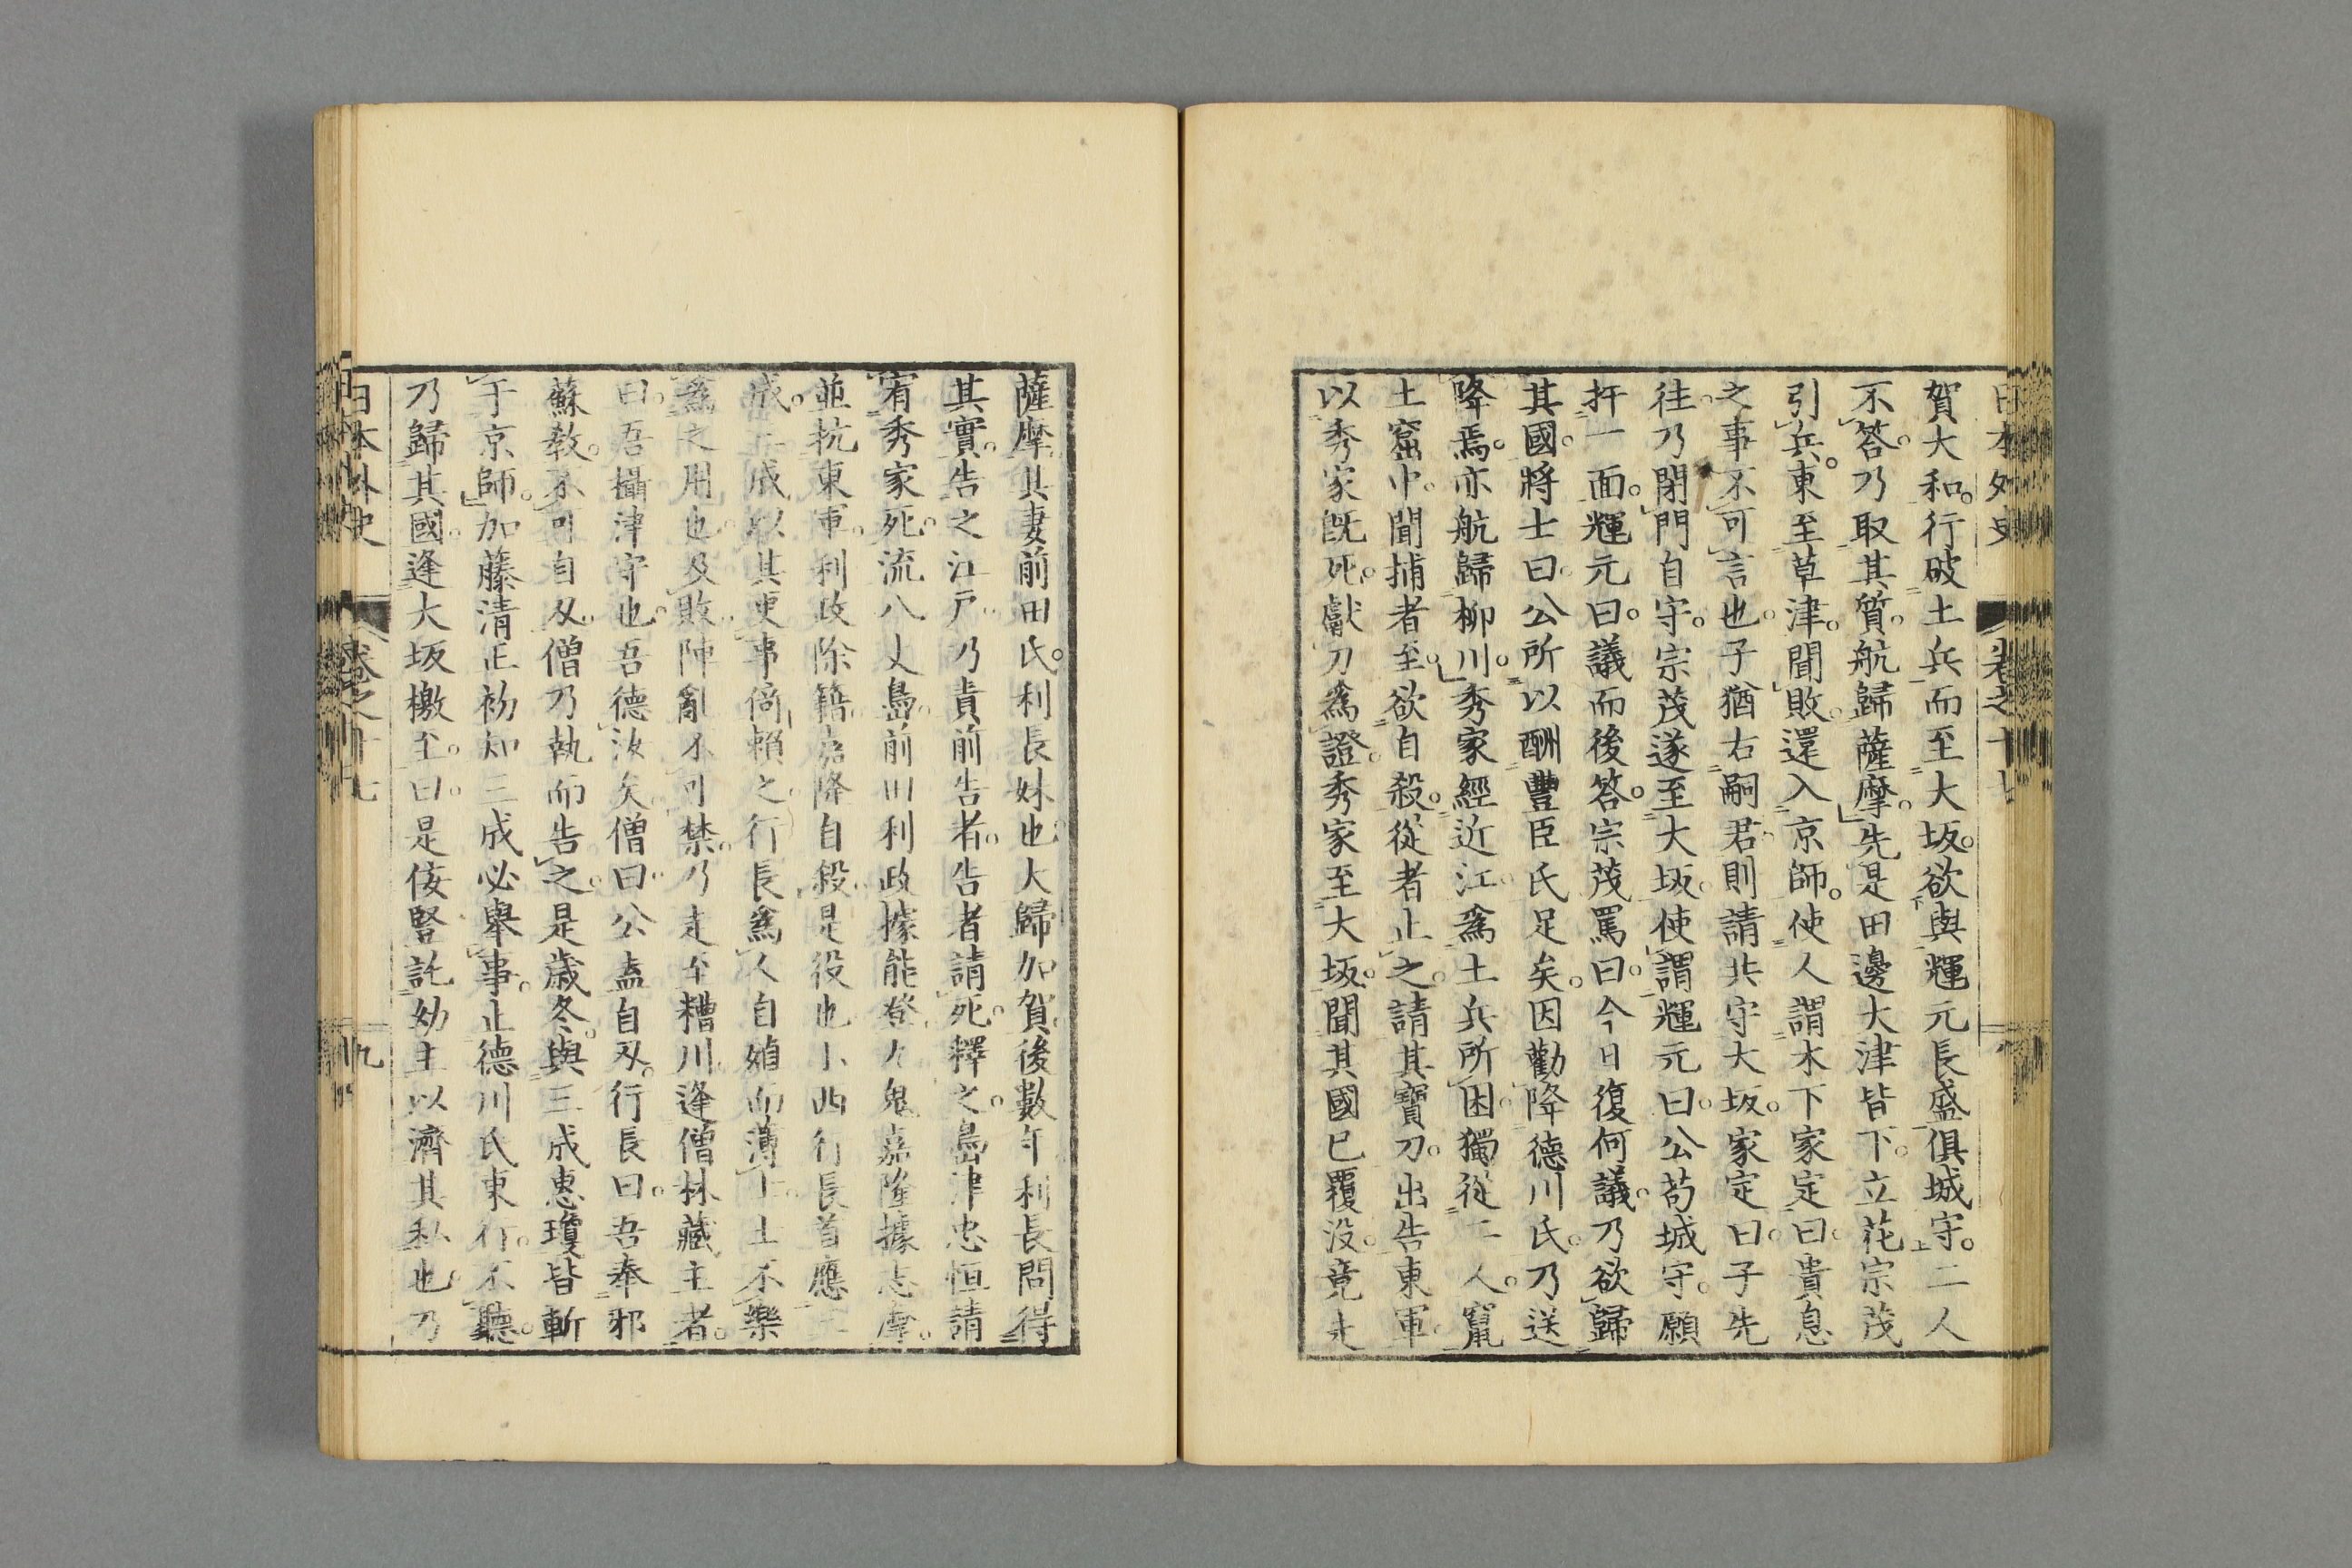 日本外史 卷之十七
賀大和。行破土兵而至大坂。欲與輝元長盛俱城守。二人
不答。乃取其質。航歸薩摩。先是田邊大津皆下。立花宗茂
引兵。東至草津。聞敗。還入京師。使人謂木下家定曰。貴息
之事不可言也。子猶右嗣君。則請共守大坂。家定曰。子先
往。乃閉門自守。宗茂遂至大坂。使謂輝元曰。公苟城守。願
扞一面。輝元曰。議而後答。宗茂罵曰。今日復何議。乃欲歸
其國。將士曰。公所以酬豐臣氏足矣。因勸降德川氏。乃送
降焉。亦航歸柳川。秀家經近江。爲土兵所困。獨從二人。竄
土窟中。聞捕者至。欲自殺。從者止之。請其寶刀。出告東軍
以秀家既死。獻刀爲證。秀家至大坂。聞其國已覆没。竟走
薩摩。其妻前田氏。利長妹也。大歸加賀。後數年利長問得
其實。告之江戶。乃責前告者。告者請死。釋之。島津忠恒請
宥秀家死。流八丈島。前田利政據能登。九鬼嘉隆據志摩。
並抗東軍。利政除籍。嘉降自殺。是役也。小西行長首應三
成。三成以其吏事倚賴之。行長爲人自媢而薄士。士不樂
爲之用也。及敗。陣亂不可禁。乃走至糟川。逢僧林藏主者。
曰。吾攝津守也。吾德汝矣。僧曰。公盍自刄。行長曰。吾奉邪
蘇教。不可自刄。僧乃執而告之。是歲冬。與三成惠瓊皆斬
于京師。加藤清正初知三成必舉事。止德川氏東行。不聽。
乃歸其國。逢大坂檄至。曰。是佞豎託幼主以濟其私也。乃
日本外史 卷之十七 九